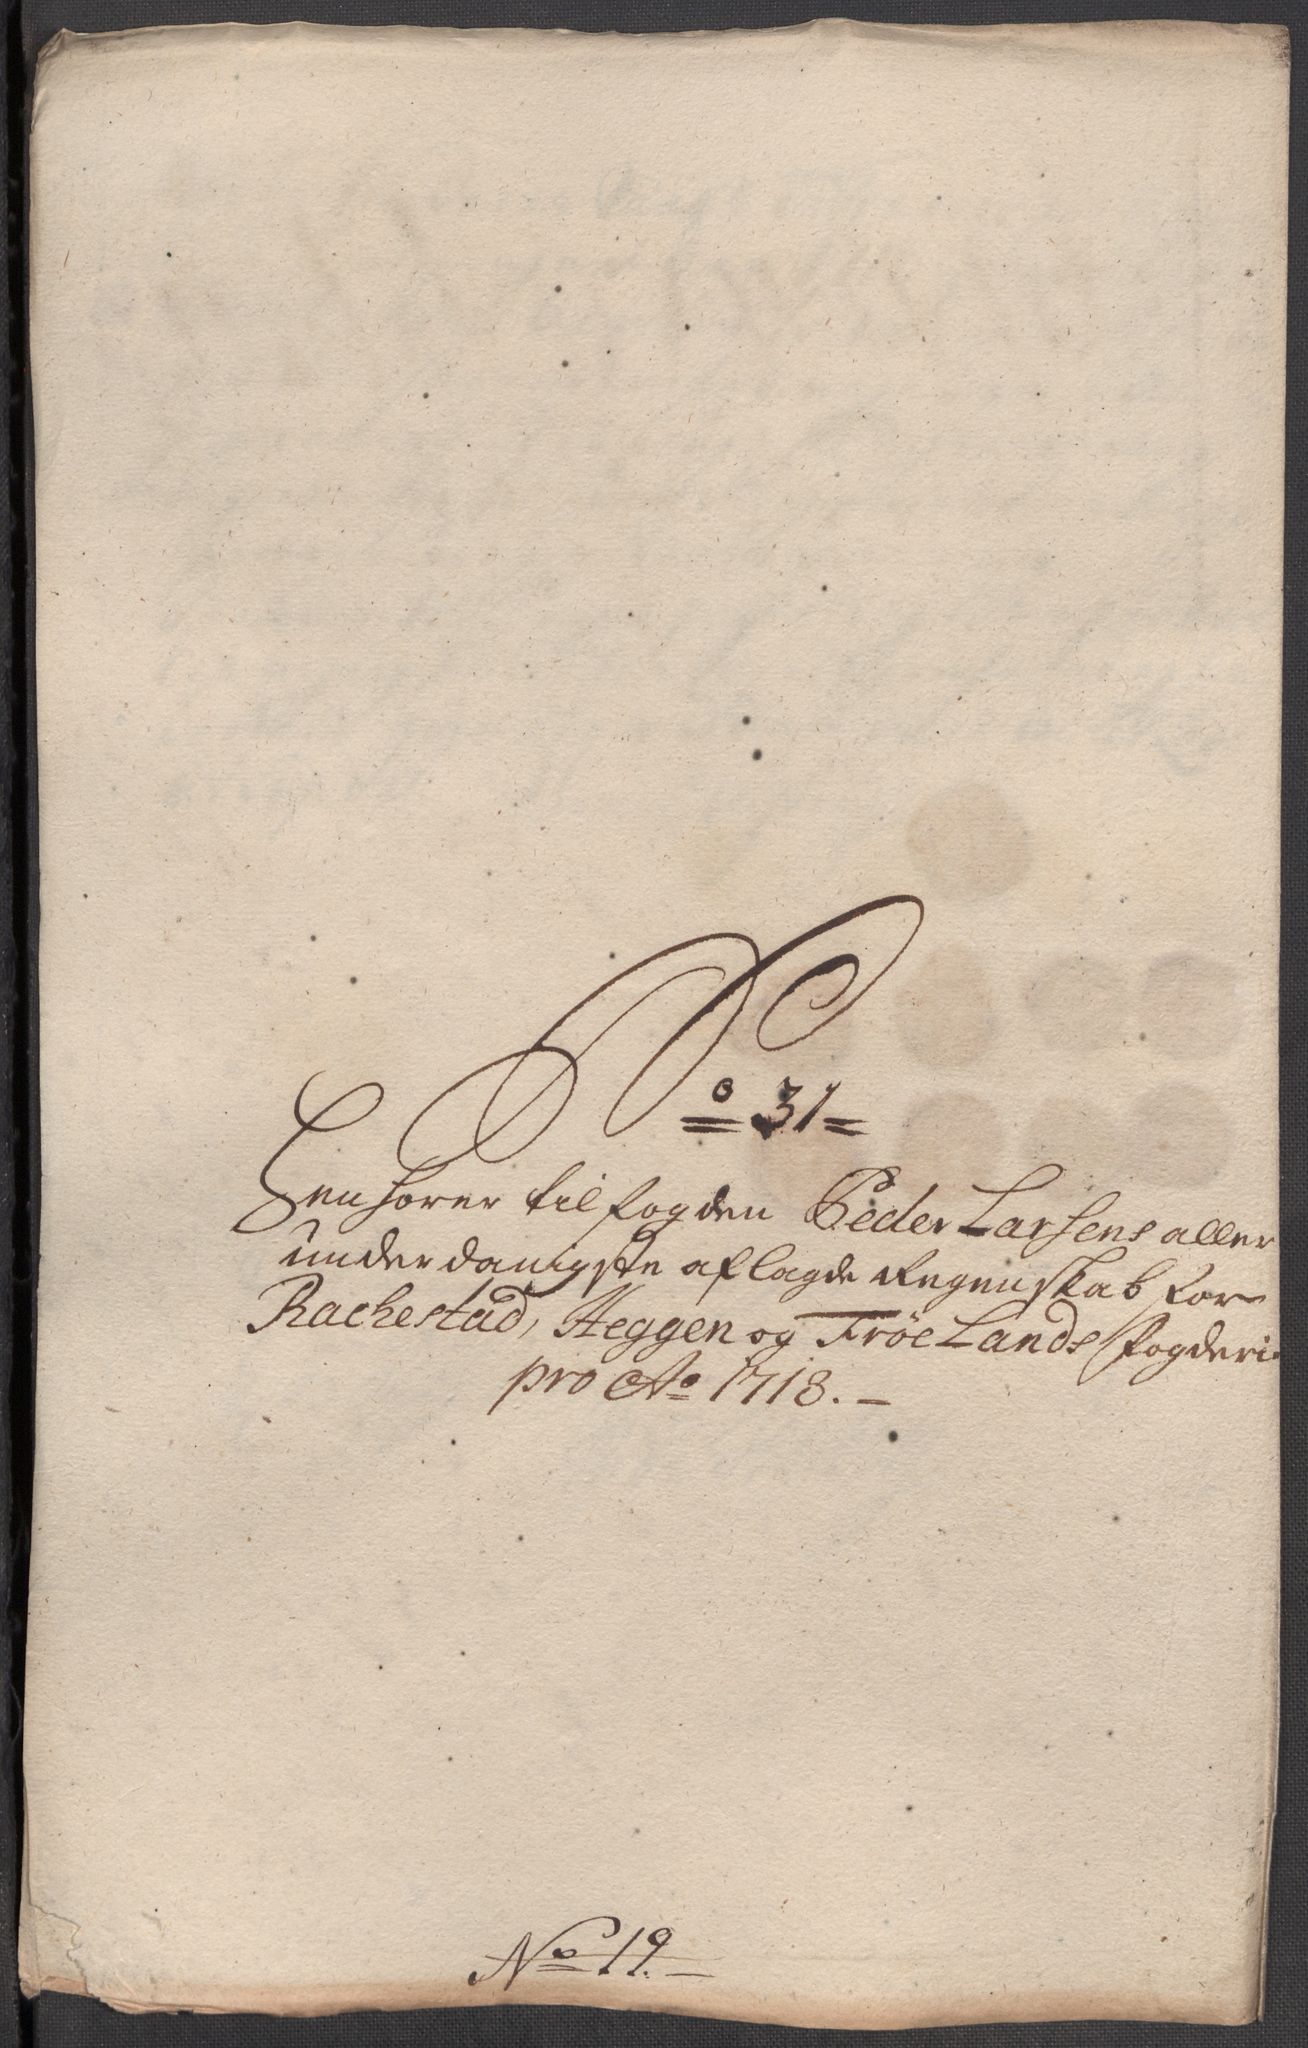 No 31
Henhører til fogden Peder Larsens aller
underdanigste aflagde Regenskab for
Rachestad, Heggen og Frøelands fogderi
pro Ao 1718.
No 19.